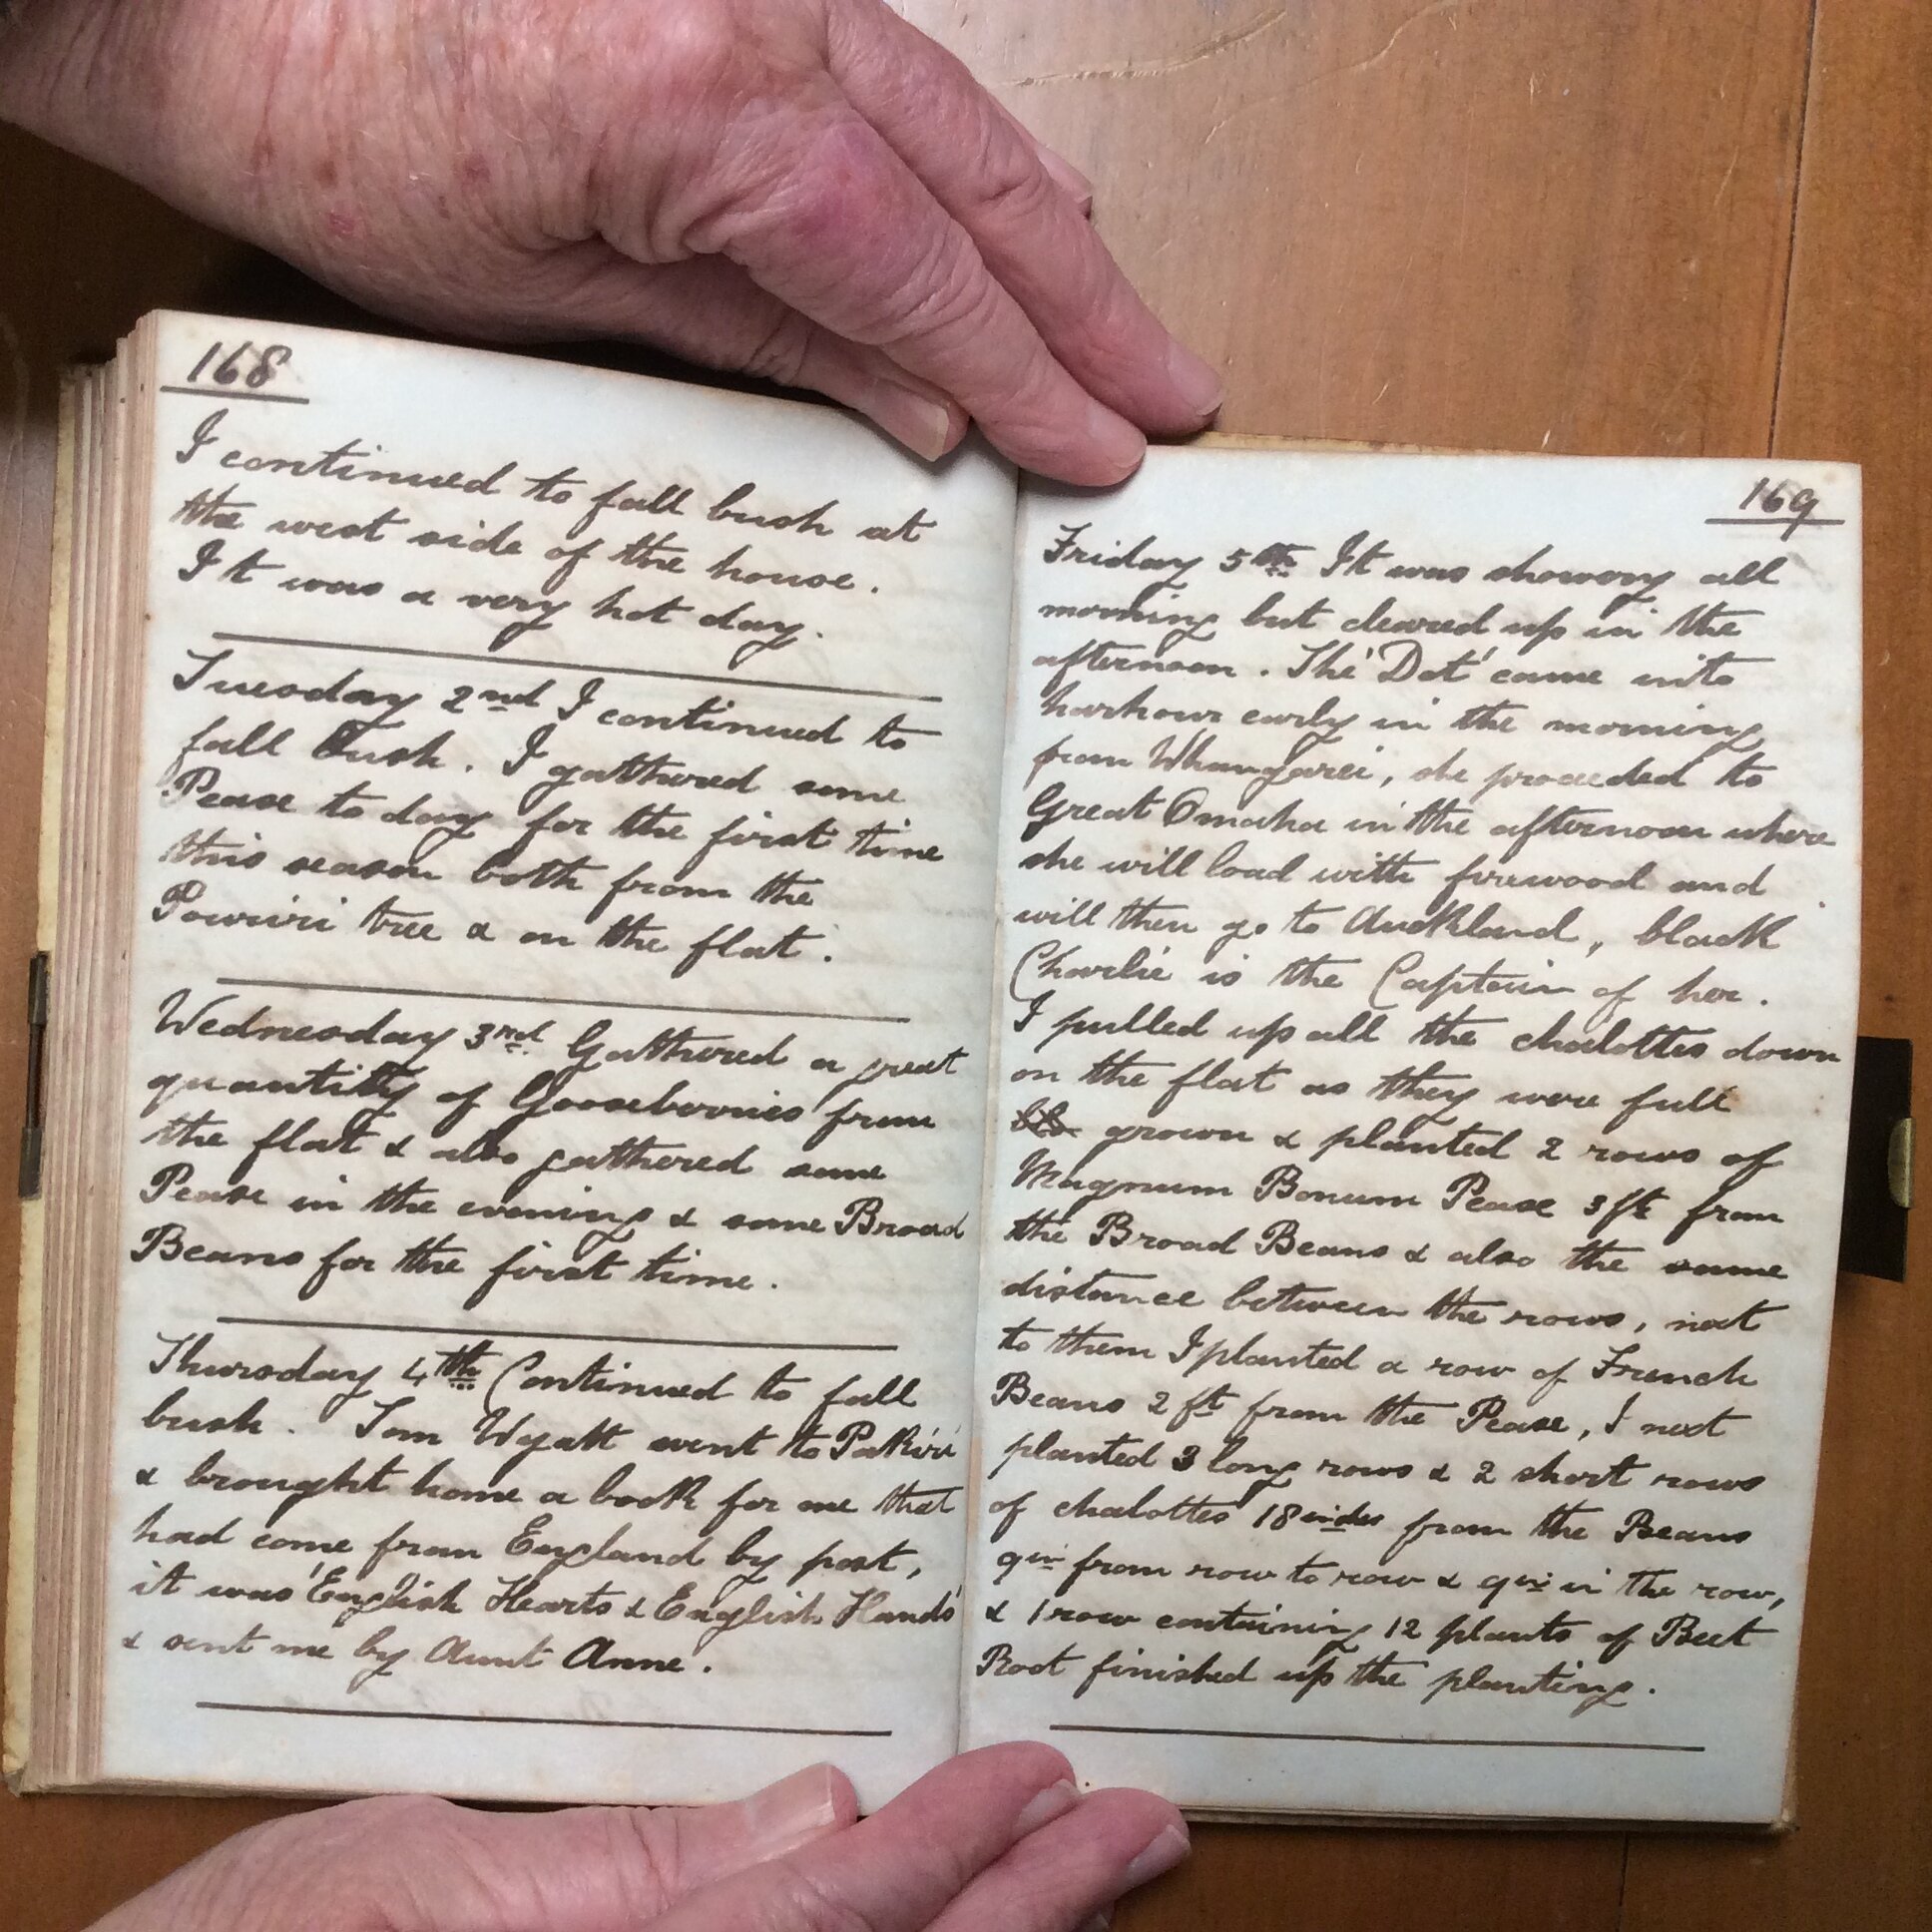 168
I continued to fall bush at
the west side of the house.
It was a very hot day.
Tuesday 2nd I continued to
fall Bush. I gathered some
Pease to day for the first time
this season both from the
Powriri tree & on the flat.
Wednesday 3rd Gathered a great
quantity of Gooseberries from
the flat & also gathered some
Pease in the evening & some Broad
Beans for the first time.
Thursday 4th Continued to fall
bush. Tom Wyatt went to Pakiri
& brought home a book for me that
had come from England by post,
it was 'English Hearts & English Hands'
& sent me by Aunt Anne.
169
Friday 5th It was showery all
morning but cleared up in the
afternoon. The 'Dot' came into
harbour early in the morning
from Whangarei, she proceeded to
Great Omaha in the afternoon where
she will load with firewood and
will then go to Auckland, black
Charlie is the Captain of her.
I pulled up all the chalottes down
on the flat as they were full
grown & planted 2 rows of
Magnum Bonum Pease 3 ft from
the Broad Beans & also the same
distance between the rows, next
to them I planted a row of French
Beans 2 ft from the Pease, I next
planted 3 long rows & 2 short rows
of chalottes 18 inches from the Beans
9in from row to row & 9in in the row,
& 1 row containing 12 plants of Beet
Root finished up the planting.